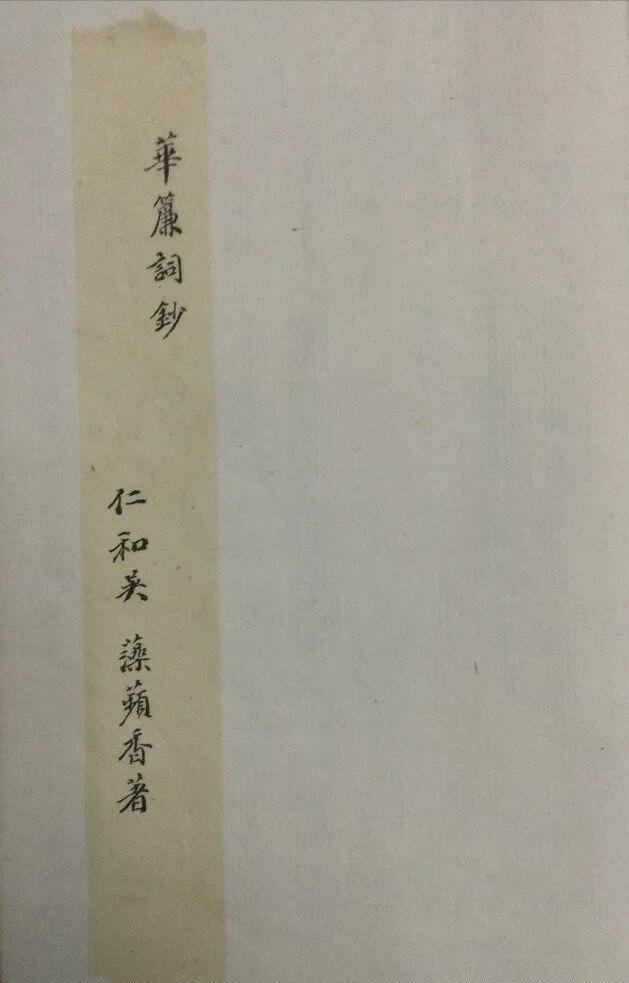 華簾詞鈔
仁和吳藻蘋香著